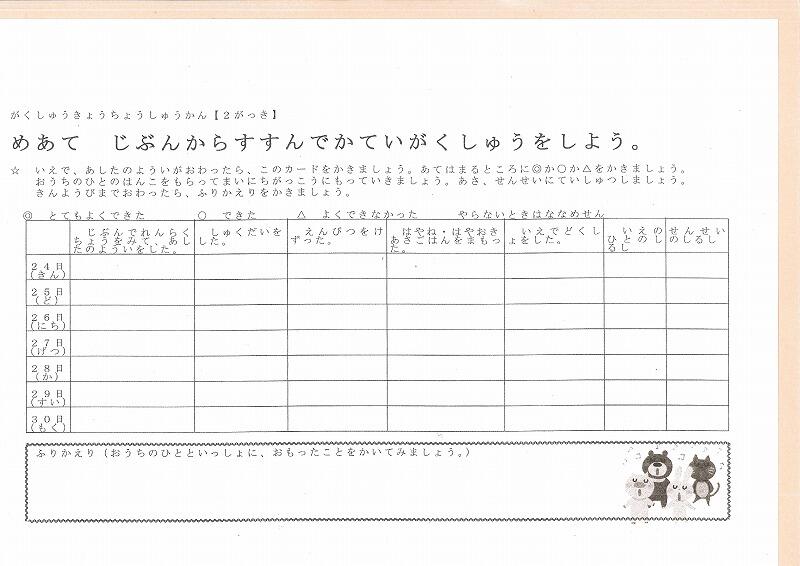 がくしゅうきょうちょうしゅうかん【２がっき】
めあて　じぶんからすすんでかていがくしゅうをしよう。
☆　いえで、あしたのよういがおわったら、このカードをかきましょう。あてはまるところに◎か○か△をかきましょう。
おうちのひとのはんこをもらってまいにちがっこうにもっていきましょう。あさ、せんせいにていしゅつしましょう。
きんようびまでおわったら、ふりかえりをかきましょう。
◎　とてもよくできた　　　○　できた　　　△　よくできなかった　　　やらないときはななめせん
じぶんでれんらく
ちょうをみて、あし
たのよういをした。
しゅくだいを
した。
えんぴつをけ
ずった。
はやね・はやおき
あさごはんをまもっ
た。
いえでどくし
ょをした。
いえの
ひとのし
るし
せんせい
のしるし
２４日
（きん）
２５日
（ど）
２６日
（にち）
２７日
（げつ）
２８日
（か）
２９日
（すい）
３０日
（もく）
ふりかえり（おうちのひとといっしょに、おもったことをかいてみましょう。）